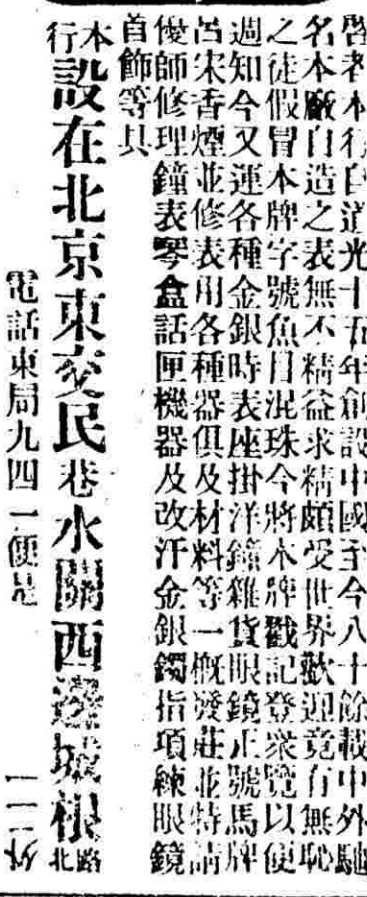 啓者本行自道光十五年創設中國至今八十餘載中外馳
名本廠自造之表無不精益求精頗受世界歡迎竟有無恥
之徒假冒本牌字號魚目混珠今將本牌戳記登衆覽以便
週知今又運各種金銀時表座掛洋鐘雜貨眼鏡正號馬牌
呂宋香煙並修表用各種器俱及材料等一概發莊並特請
優師修理鐘表琴盒話匣機器及改汗金銀鐲指項練眼鏡
首飾等具
本行設在北京東交民巷水關西邊城根路北
電話東局九四一便是